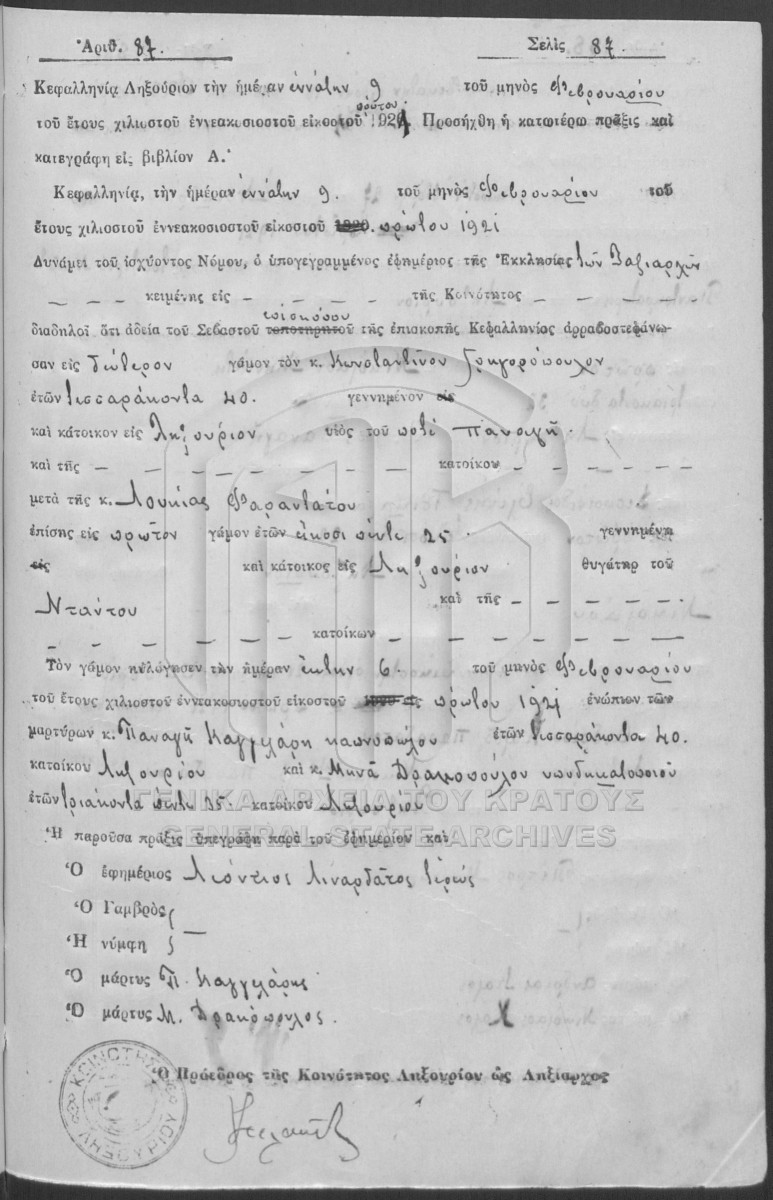 Ἀριθ. 87. Σελὶς 87.
Κεφαλληνίᾳ Ληξούριον τὴν ἡμέραν ἐννάτην 9 τοῦ μηνὸς Φεβρουαρίου
πρώτου
τοῦ ἔτους χιλιοστοῦ ἐννεακοσιοστοῦ εἰκοστοῦ 1921 Προσήχθη ἡ κατωτέρω πρᾶξις καὶ
κατεγράφη εἰς βιβλίον Α.'
Κεφαλληνίᾳ, τὴν ἡμέραν ἐννάτην 9. τοῦ μηνὸς Φεβρουαρίου τοῦ
ἔτους χιλιοστοῦ ἐννεακοσιοστοῦ εἰκοστοῦ 1920. πρώτου 1921
Δυνάμει τοῦ ἰσχύοντος Νόμου, ὁ ὑπογεγραμμένος ἐφημέριος τῆς Ἐκκλησίας τῶν Ταξιαρχῶν
— — — — κειμένης εἰς — — — — — τῆς Κοινότητος — — — —
ἐπισκόπου
διαδηλοῖ ὅτι ἀδείᾳ τοῦ Σεβαστοῦ τοποτηρητοῦ τῆς ἐπισκοπῆς Κεφαλληνίος ἀρραβοστεφάνω-
σαν εἰς δεύτερον γάμον τὸν κ. Κωνσταντῖνον Γρηγορόπουλον
ἐτῶν τεσσαράκοντα 40. γεννημένον εἰς
καὶ κάτοικον εἰς Ληξούριον υἱὸς τοῦ ποτὲ Παναγῆ.
καὶ τῆς — — — — — — — — κατοίκου — — — — —
μετὰ τῆς κ. Λουκίας Φαραντάτου
ἐπίσης εἰς πρῶτον γάμον ἐτῶν εἴκοσι πέντε 25. γεννημένη
εἰς καὶ κάτοικος εἰς Ληξούριον θυγάτηρ τοῦ
Ντάντου καὶ τῆς — — — — —
— — — — — — — κατοίκων — — — — — — — —
Τὸν γάμον ηὐλόγησεν τὴν ἡμέραν ἕκτην 6. τοῦ μηνὸς Φεβρουαρίου
τοῦ ἔτους χιλιοστοῦ ἐννεακοσιοστοῦ εἰκοστοῦ πρώτου 1921 ἐνώπιον τῶν
μαρτύρων κ. Παναγῆ Καγγελάρη καπνοπώλου ἐτῶν τεσσαράκοντα 40.
κατοίκου Ληξουρίου καὶ κ. Μηνᾶ Δρακοπούλου ὑποδηματοποιοῦ
ἐτῶν τριάκοντα πέντε 35. κατοίκου Ληξουρίου
ΓΕΝΙΚΑ ΑΡΧΕΙΑ ΤΟΥ ΚΡΑΤΟΥΣ
GENERAL STATE ARCHIVES
Ἡ παροῦσα πρᾶξις ὑπεγράφη παρὰ τοῦ ἐφημερίου καὶ
Ὁ ἐφημέριος Λεόντιος Λιναρδᾶτος ἱερεύς
Ὁ Γαμβρὸς
Ἡ νύμφη
Ὁ μάρτυς Π. Καγγελάρης
Ὁ μάρτυς Μ. Δρακόπουλος.
Ὁ Πρόεδρος τῆς Κοινότητος Ληξουρίου ὡς Ληξίαρχος
ΚΟΙΝΟΤΗΣ ΛΗΞΟΥΡΙΟΥ